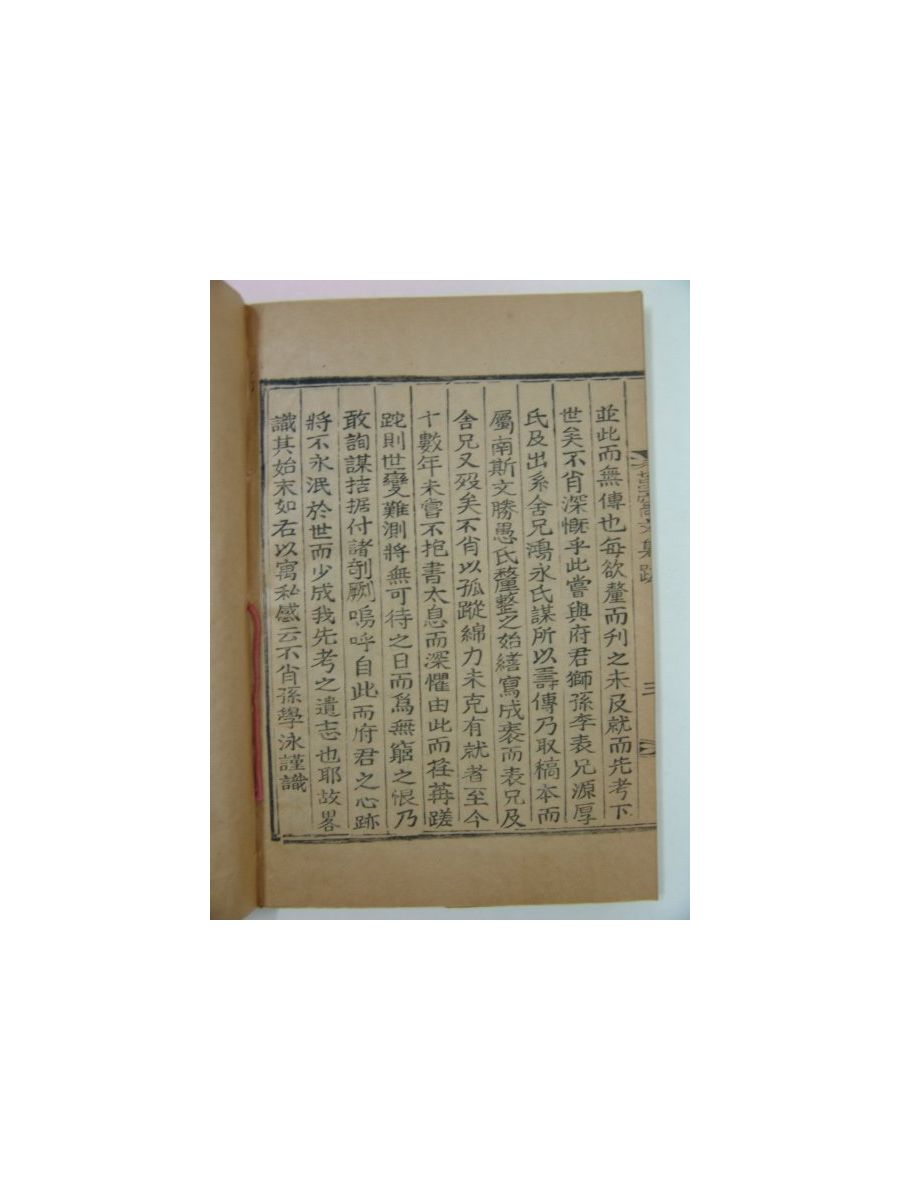 文集跋
三
並此而無傳也每欲釐而刋之未及就而先考下
世矣不肖深慨乎此嘗與府君獅孫李表兄源厚
氏及出系舍兄鴻永氏謀所以壽傳乃取稿本而
屬南斯文勝愚氏釐整之始繕寫成袠而表兄及
舍兄又歿矣不肖以孤蹤綿力未克有就者至今
十數年未嘗不抱書太息而深懼由此而荏苒蹉
跎則世變難測將無可待之日而爲無窮之恨乃
敢詢謀拮据付諸剞劂嗚呼自此而府君之心跡
將不永泯於世而少成我先考之遺志也耶故畧
識其始末如右以寓私感云不肖孫學泳謹識